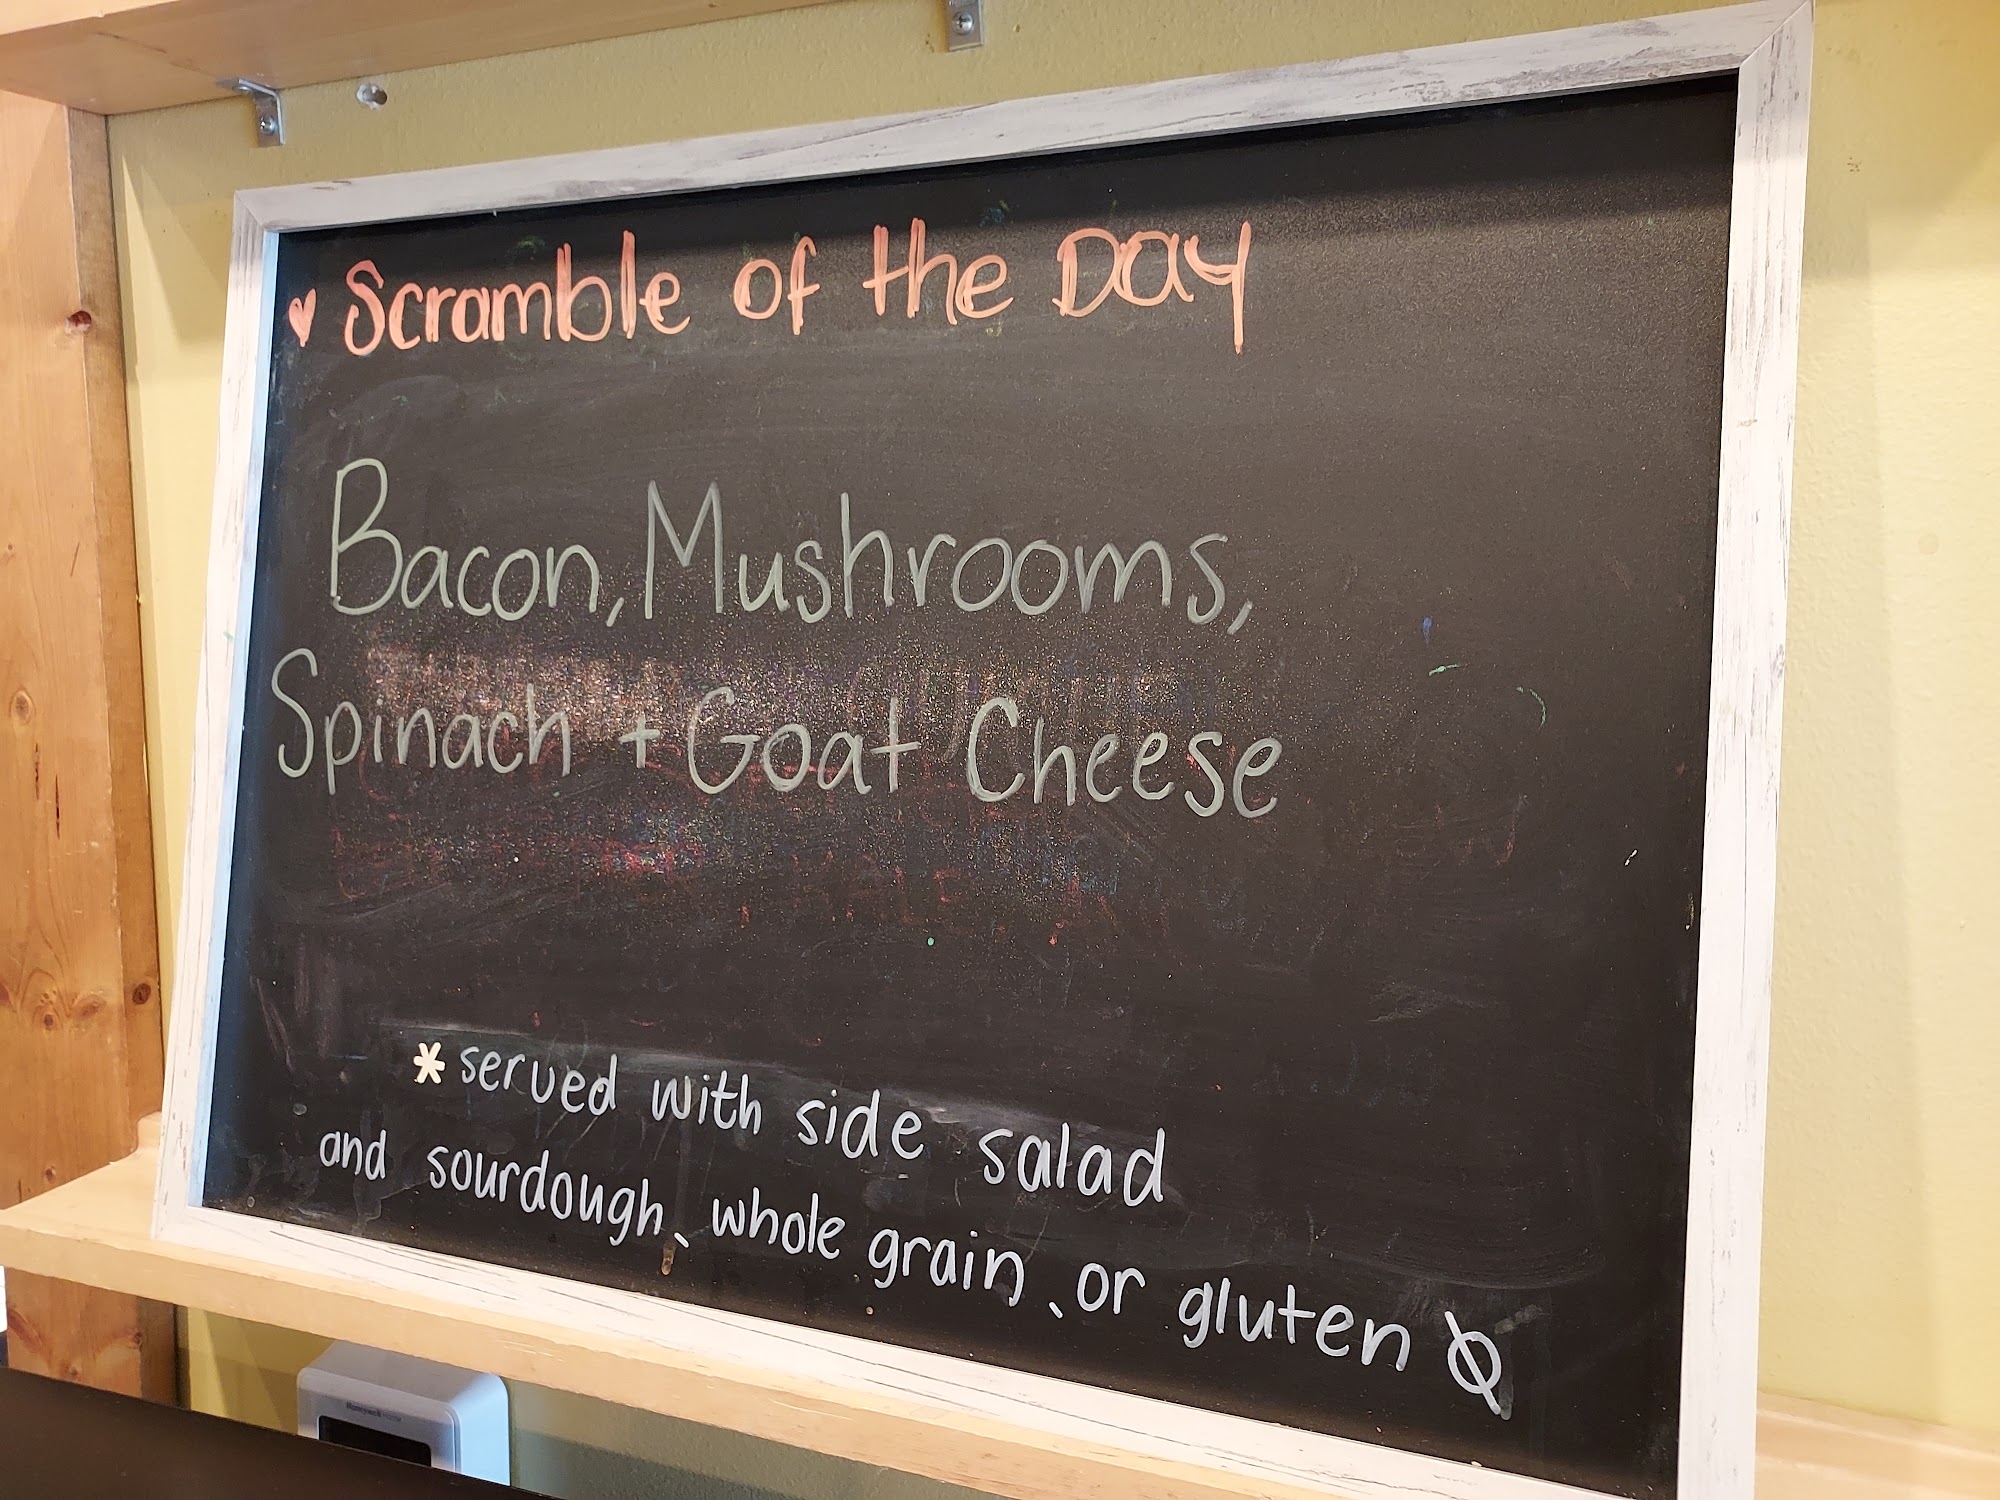 ♥ Scramble of the Day
Bacon, Mushrooms,
Spinach + Goat Cheese
* served with side salad
and sourdough, whole grain, or gluten Ø
Honeywell Home